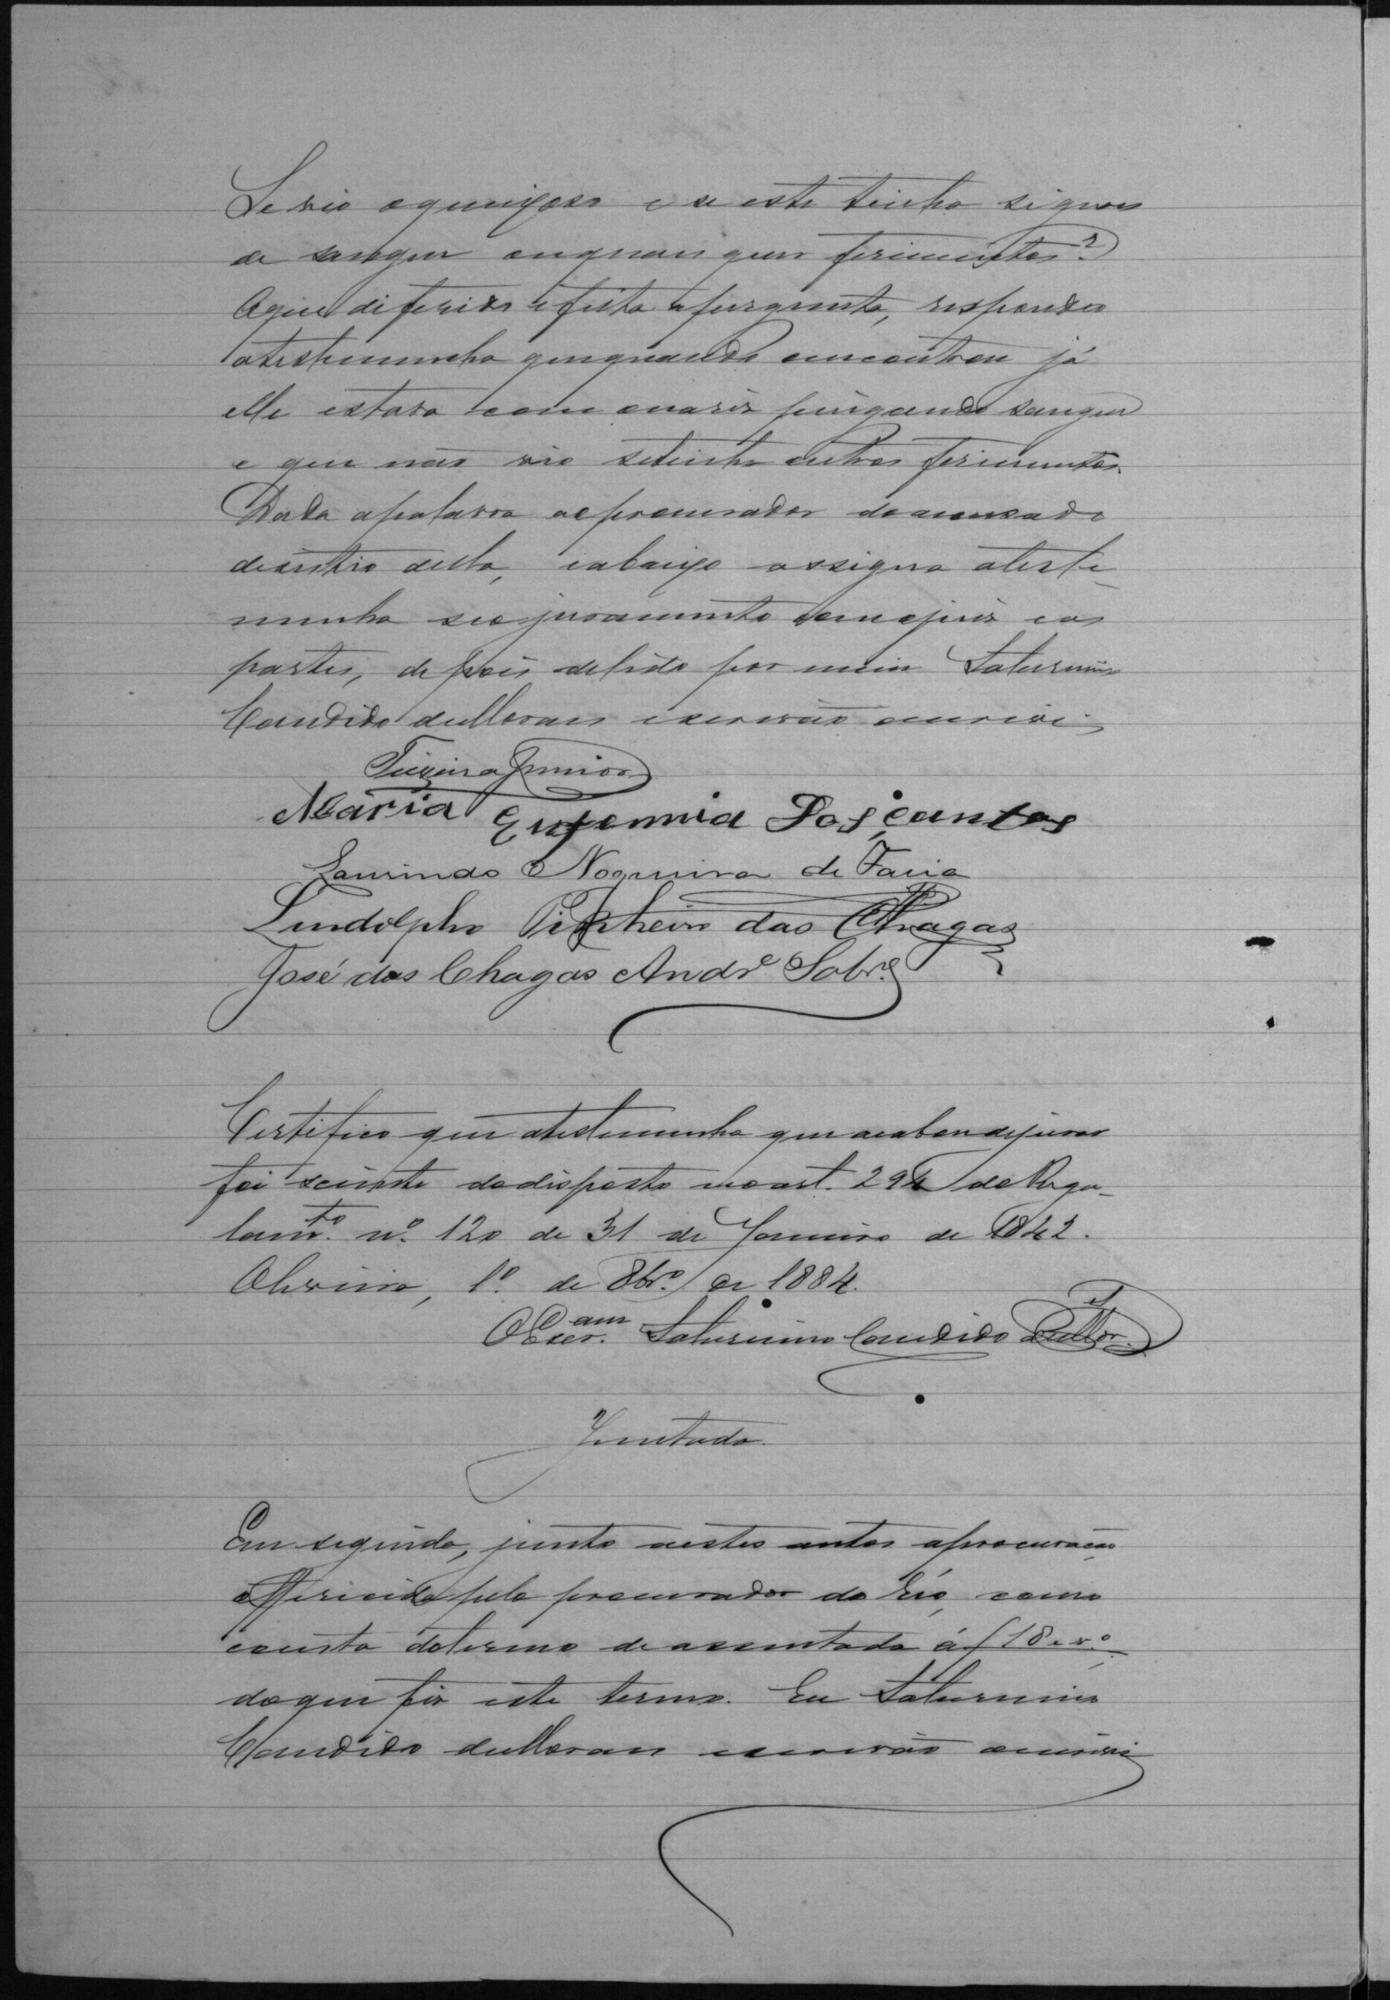 Se vio o queixoso e se este tinha signaes
de sangue ou quaes quer ferimentos?
Oque diferido e feita a pergunta, respondeo
atestemunha que quando encontrou já
elle estava com onariz pingando sangue
e que não vio se tinha outros ferimentos.
Dada apalavra ao procurador do accusado
desistio della, e abaixo assigna ateste-
munha seo juramento com o juiz e as
partes, de pois de lido por mim Saturnino
Candido de Moraes escrivão o escrevi.
Teixeira Junior
Maria Eufemia Dos çantos
Laurindo Nogueira de Faria
Lindolpho Pinheiro das Chagas
José das Chagas Andrᵉ Sobrº
Certifico que atestemunha que acabou dejurar
foi sciente do disposto no art. 294 do Regu-
lamᵗᵒ. nº. 120 de 31 de Janeiro de 1842.
Oliveira, 1º. de 8brº. de 1884.
O Escr.ᵃᵐ Saturnino Candido de Mor.
Juntada.
Em seguida, junto aestes autos aprocuração
offerecida pelo procurador do Réo, como
consta do termo de assentada á f 18 e vº.
doque fiz este termo. Eu Saturnino
Candido de Moraes escrivão o escrevi